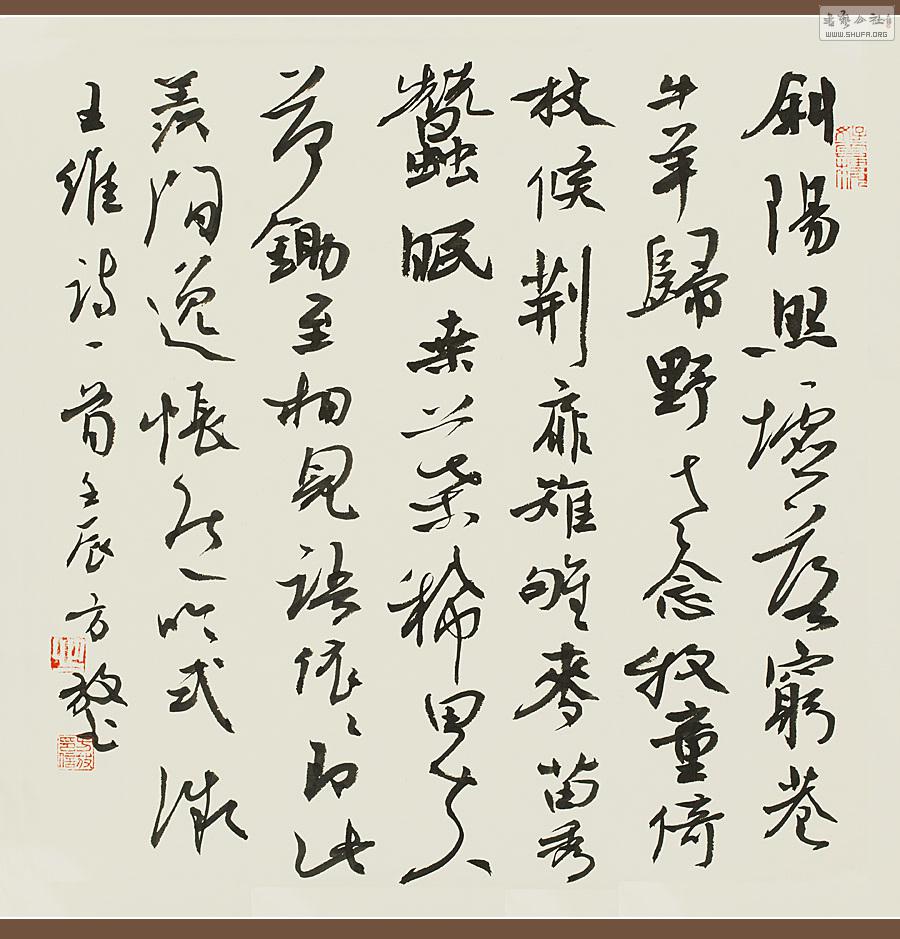 斜陽照墟落窮巷
牛羊歸野老念牧童倚
杖候荊扉雉雊麥苗秀
蠶眠桒葉稀田夫
荷鋤至相見語依〻即此
羨間逸悵然吟式微
王維詩一首壬辰方放書
書藝公社
WWW.SHUFA.ORG